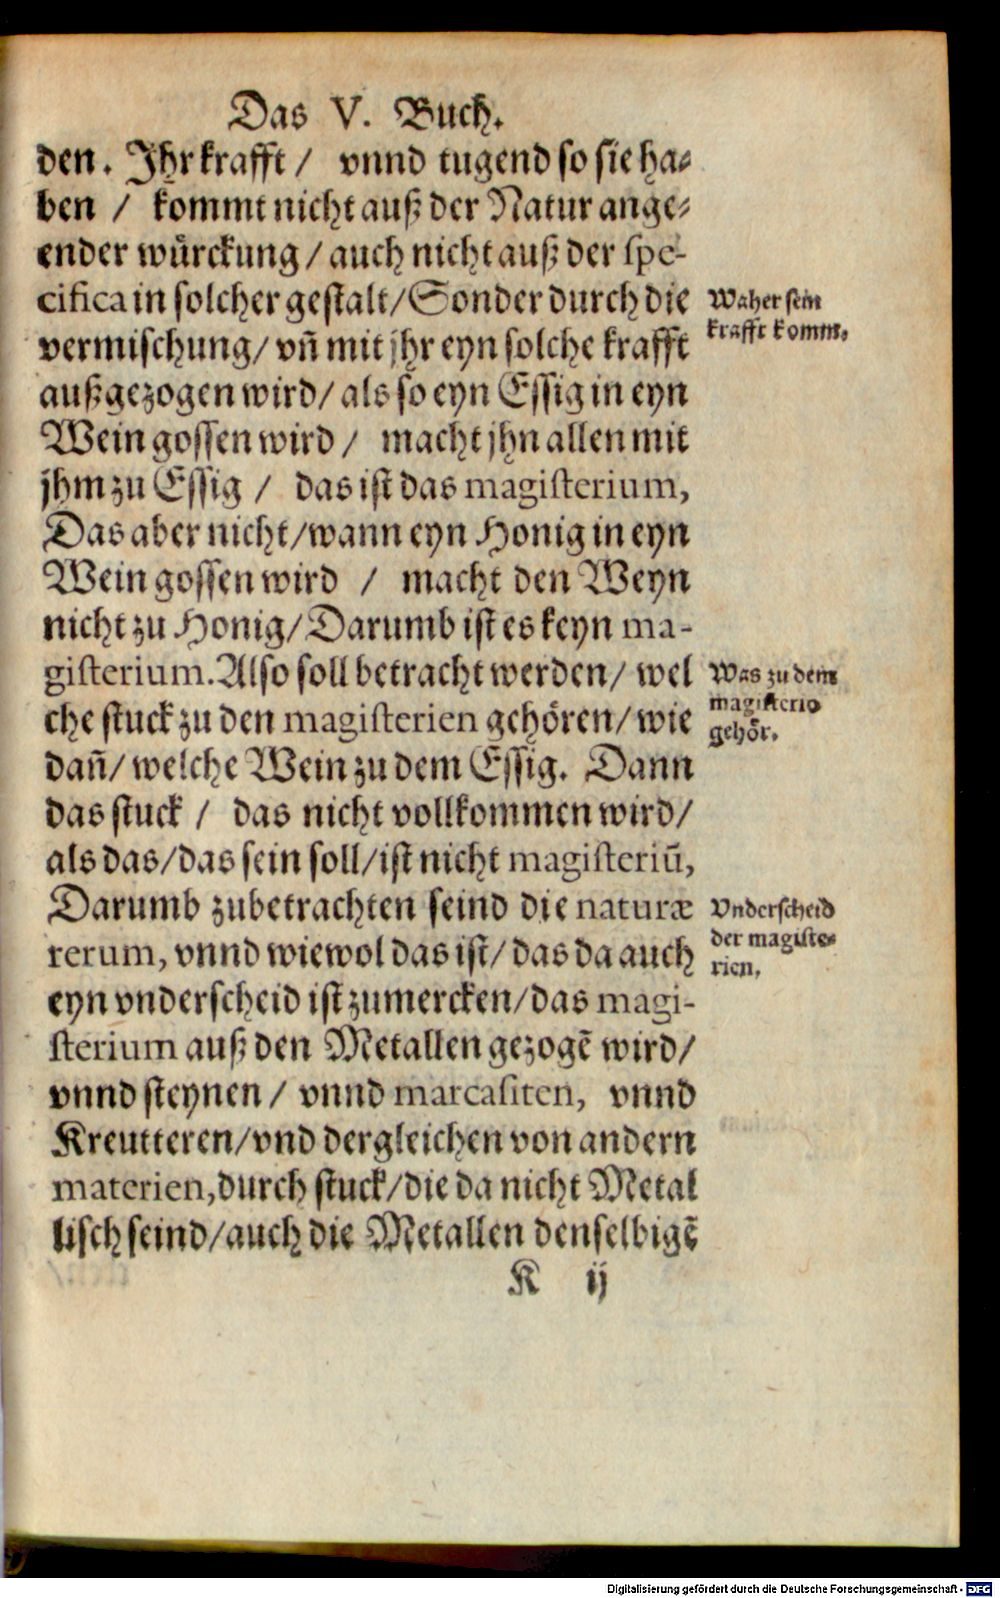 Das V. Buch.
den. Jhr krafft / vnnd tugend so sie ha⸗
ben / kommt nicht auß der Natur ange⸗
ender würckung / auch nicht auß der spe-
cifica in solcher gestalt / Sonder durch die
vermischung / vñ mit jhr eyn solche krafft
außgezogen wird / als so eyn Essig in eyn
Wein gossen wird / macht jhn allen mit
jhm zu Essig / das ist das magisterium,
Das aber nicht / wann eyn Honig in eyn
Wein gossen wird / macht den Weyn
nicht zu Honig / Darumb ist es keyn ma-
gisterium. Also soll betracht werden / wel
che stuck zu den magisterien gehören / wie
dañ / welche Wein zu dem Essig. Dann
das stuck / das nicht vollkommen wird /
als das / das sein soll / ist nicht magisteriũ,
Darumb zubetrachten seind die naturæ
rerum, vnnd wiewol das ist / das da auch
eyn vnderscheid ist zumercken / das magi-
sterium auß den Metallen gezogẽ wird /
vnnd steynen / vnnd marcasiten, vnnd
Kreutteren / vnd dergleichen von andern
materien, durch stuck / die da nicht Metal
lisch seind / auch die Metallen denselbigẽ
K ij
Waher sein
krafft komm.
Was zu dem
magisterio
gehör.
Vnderscheid
der magiste⸗
rien.
Digitalisierung gefördert durch die Deutsche Forschungsgemeinschaft - DFG